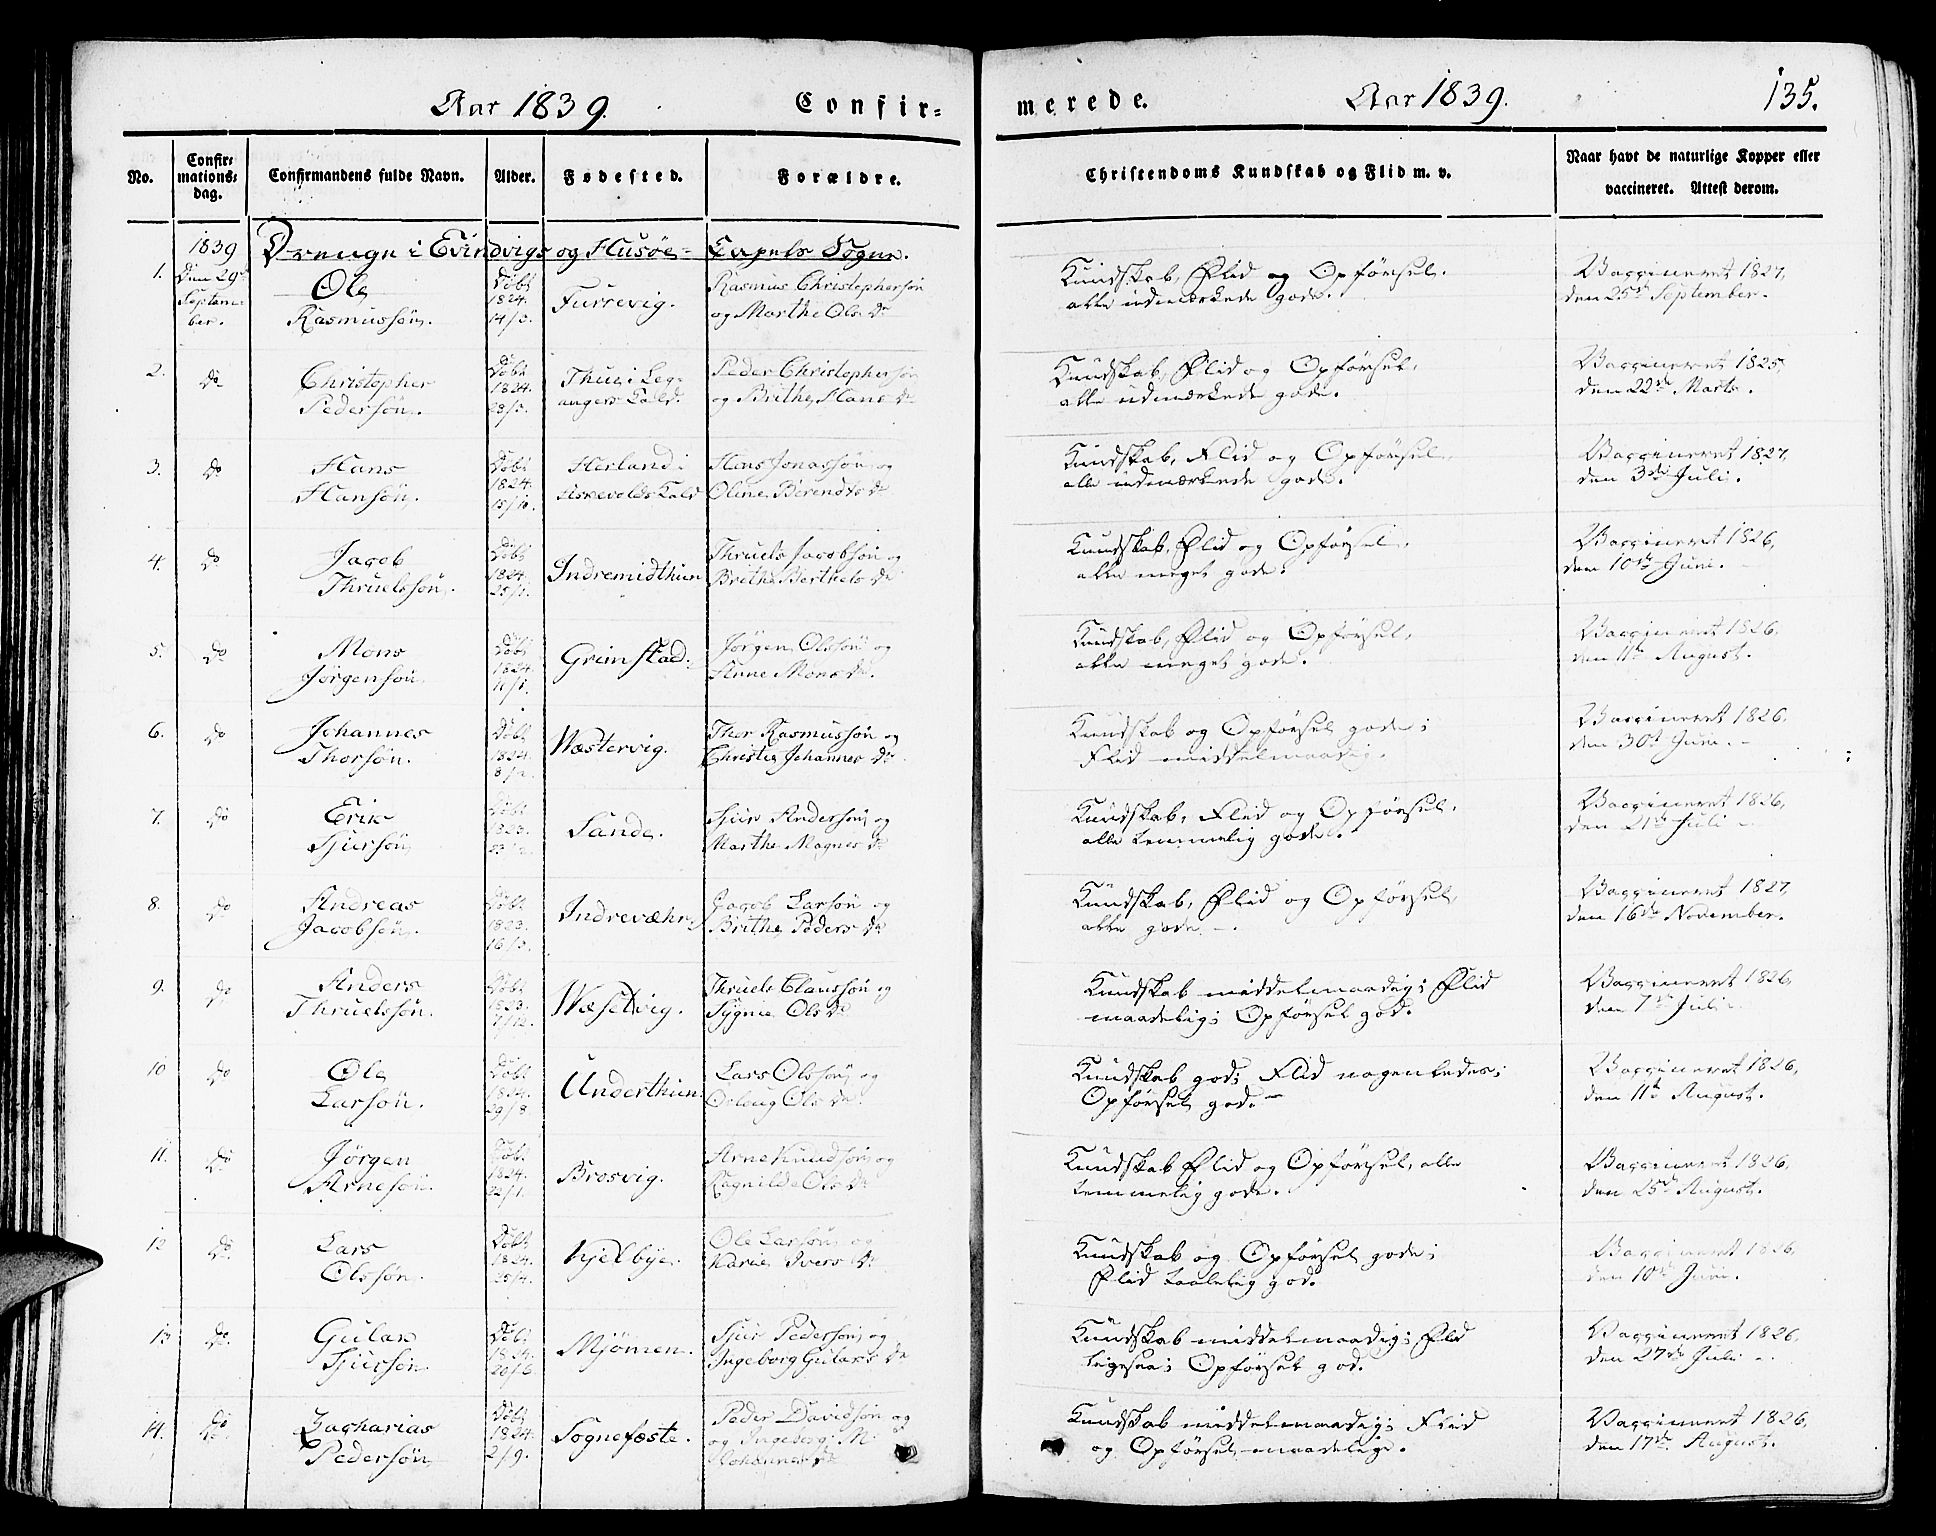 Aar 1839. Confir-
merede. Aar 1839. 135.
No.
Confir-
mations-
dag.
Confirmandens fulde Navn.
Alder.
Fødested.
Forældre.
Christendoms Kundskab og Flid m. v.
Naar havt de naturlige Kopper eller
vaccineret. Attest derom.
1839 Drenge i Evindvigs og Husøe- Capels Sogne.
1. Den 29de
Septem-
ber.
Ole
Rasmussøn.
Døbt
1824.
14/3.
Furrevig.
Rasmus Christophersøn
og Marthe Ols Dr
Kundskab, Flid og Opførsel,
alle udmærkede gode.
Vaccineret 1827,
den 25de September.
2. Do
Christopher
Pedersøn.
Døbt
1824.
28/3.
Thue i Leg-
angers Kald.
Peder Christophersøn
og Brithe Hans Dr
Kundskab, Flid og Opførsel,
alle udmærkede gode.
Vaccineret 1825,
den 22de Marts.
3. Do
Hans
Hansøn.
Døbt
1824.
15/10.
Herland i
Askevolds Kald
Hans Jonassøn og
Oline Berendts Dr
Kundskab, Flid og Opførsel,
alle udmærkede gode.
Vaccineret 1827,
den 3die Juli.
4. Do
Jacob
Thruelssøn.
Døbt
1824.
25/1.
Indremidthun
Thruels Jacobsøn og
Brithe Berthels Dr
Kundskab, Flid og Opførsel,
alle meget gode.
Vaccineret 1826,
den 10de Juni.
5. Do
Mons
Jørgensøn.
Døbt
1824.
11/1.
Grimstad.
Jørgen Olssøn og
Anne Mons Dr.
Kundskab, Flid og Opførsel,
alle meget gode.
Vaccineret 1826.
den 11te August.
6. Do
Johannes
Thorsøn.
Døbt
1824.
8/2.
Wæstervig.
Thor Rasmussøn og
Christie Johannes Dr.
Kundskab og Opførsel gode;
Flid middelmaadig.
Vaccineret 1826.
den 30te Juni.
7. Do
Erik
Sjursøn
Døbt
1823.
Sande.
Sjur Andersøn og
Marthe Magnes Dr
Kundskab, Flid og Opførsel,
alle temmelig gode.
Vaccineret 1826,
den 21de Juli
8. Do
Andreas
Jacobsøn.
Døbt
1823.
16/3.
Indrevæhr.
Jacob Larsøn og
Brithe Peders Dr
Kundskab, Flid og Opførsel,
alle gode.
Vaccineret 1827,
den 16de November.
9. Do
Anders
Thruelssøn.
Døbt
1823.
7/12.
Wæsetvig.
Thruels Claussøn og
Sygnie Ols Dr
Kundskab middelmaadig; Flid
maadelig; Opførsel god.
Vaccineret 1826,
den 7de Juli
10 Do
Ole
Larsøn.
Døbt
1824.
29/8.
Underthun.
Lars Olssøn og
Ols Dr.
Kundskab god; Flid nogenledes;
Opførsel god.
Vaccineret 1826,
den 11te August.
11. Do
Jørgen
Arnesøn.
Døbt
1824.
22/1.
Brosvig.
Arne Knudsøn og
Ragnilde Ols Dr
Kundskab Flid og Opførsel, alle
temmelig gode.
Vaccineret 1826,
den 25de August.
12 Do
Lars
Olssøn.
Døbt
1824.
25/4.
Kjelbye.
Ole Larsøn og
Karie Ivers Dr
Kundskab og Opførsel gode;
Flid taalelig god.
Vaccineret 1826,
den 10de Juni.
13 Do
Gulak
Sjursøn
Døbt
1824.
20/6
Mjömen.
Sjur Pedersøn og
Ingeborg Gulaks Dr
Kundskab middelmaadig; Flid
ligesaa; Opførsel god.
Vaccineret 1826,
den 27de Juli
14. Do
Zacharias
Pedersøn
Døbt
1824.
2/9.
Sognefæste.
Peder Davidsøn og
og Ingeborg M.
Johannes Dr
Kundskab middelmaadig; Flid
og Opførsel maadelige.
Vaccineret 1826,
den 17de August.